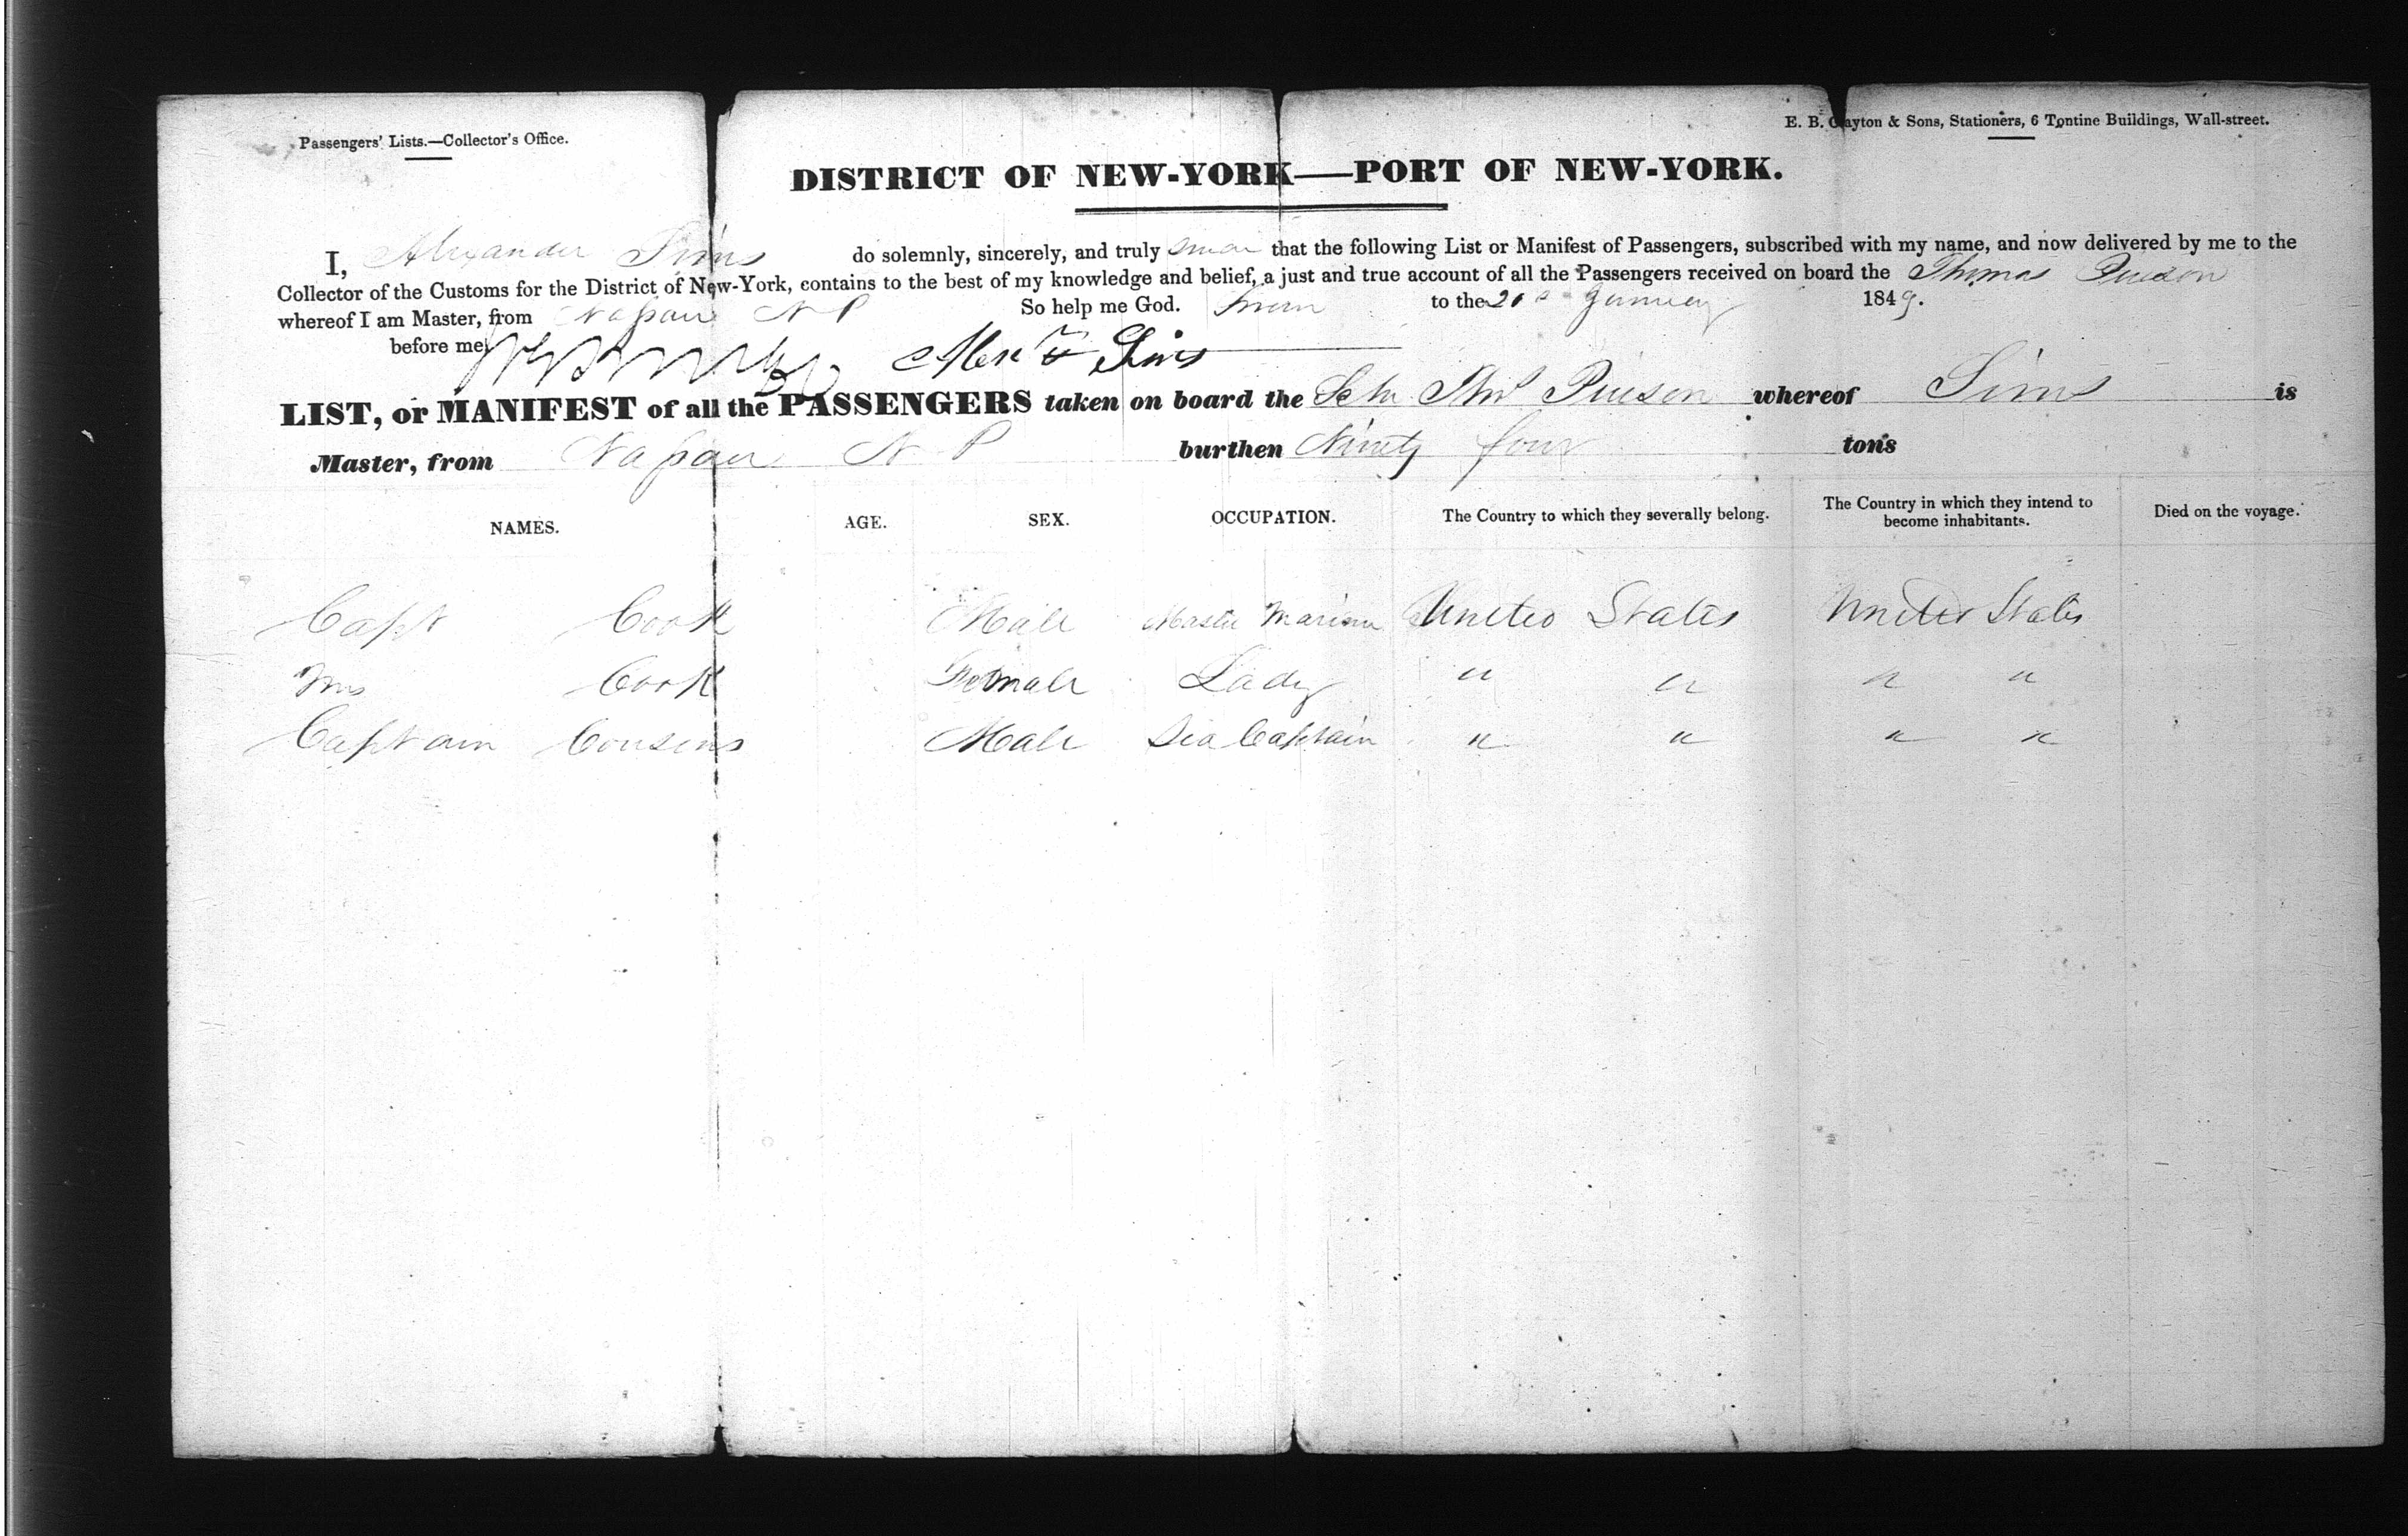 Passengers' Lists.—Collector's Office.
E. B. Clayton & Sons, Stationers, 6 Tontine Buildings, Wall-street.
DISTRICT OF NEW-YORK—PORT OF NEW-YORK.
I, Alexander Sims do solemnly, sincerely, and truly swear that the following List or Manifest of Passengers, subscribed with my name, and now delivered by me to the
Collector of the Customs for the District of New-York, contains to the best of my knowledge and belief, a just and true account of all the Passengers received on board the Thomas
whereof I am Master, from Nassau N P So help me God. Sworn to the 20 January 1849.
before me Sims
LIST, or MANIFEST of all the PASSENGERS taken on board the Schr Thos whereof Sims is
Master, from Nassau N P burthen Ninety four tons
NAMES. AGE. SEX. OCCUPATION. The Country to which they severally belong. The Country in which they intend to become inhabitants. Died on the voyage.
Capt Cook Male Master Mariner United States United States
Mrs Cook Female Lady " " " "
Captain Cousens Male Sea Captain " " " "